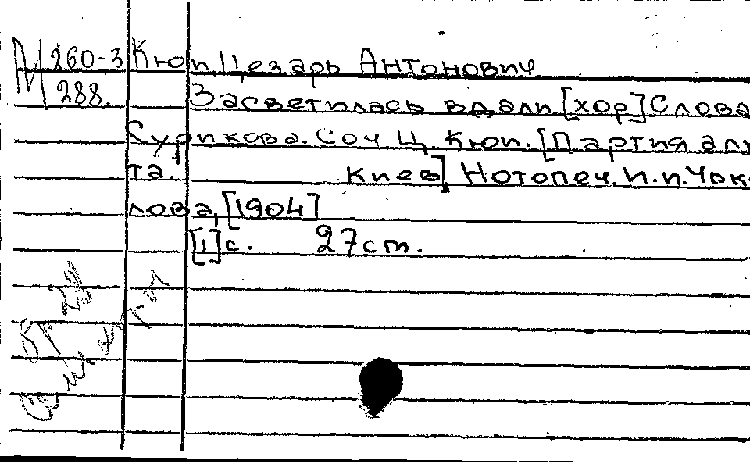 М 260-3 Кюи, Цезарь Антонович
288. Засветилась вдали [хор] Слова
Сурикова. Соч. Ц. Кюи. [Партия аль
та.] Киев, Нотопеч. И.И. Чок
лова, [1904]
[1] с. 27 cm.